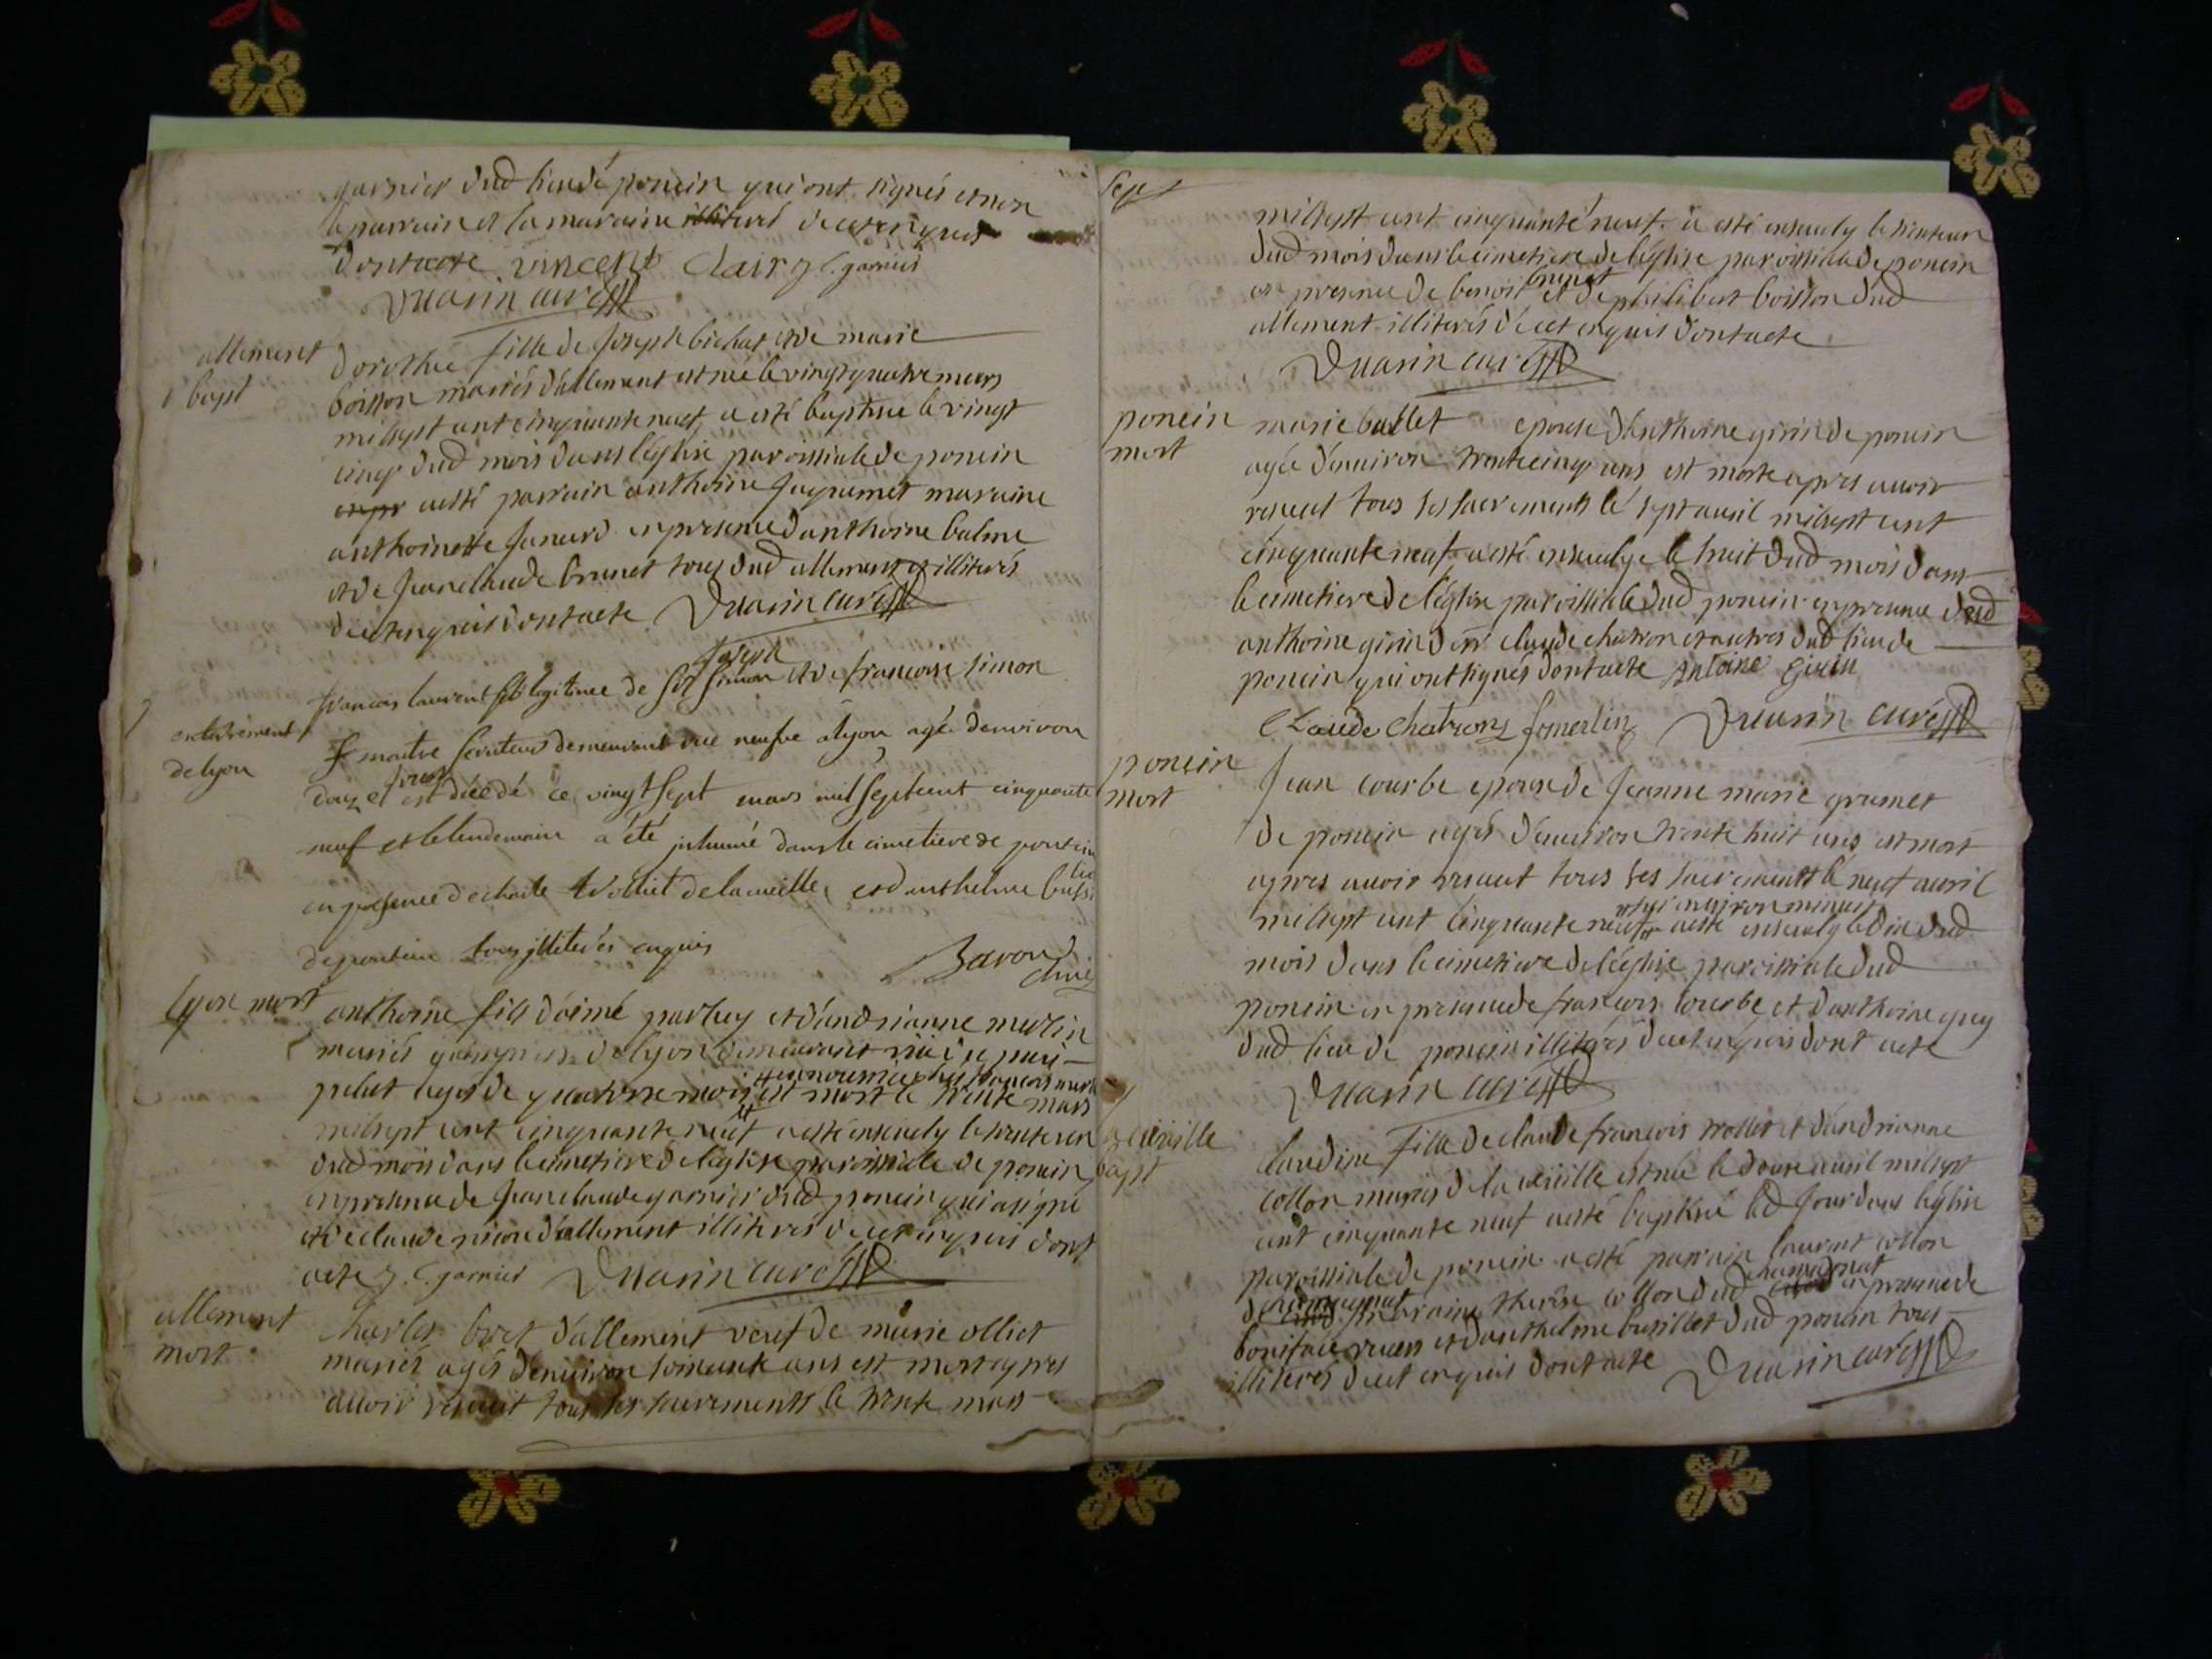 garnier dud lieu de poncin qui ont signés et non
le parrain et la maraine illiterés de cet enquis
dont acte vincent Clair J C. garnier
Duarin curé
allement
bapt
dorothée fille de Joseph bichat et de marie
boisson mariés d'allement est née le vingt quatre mars
mil sept cent cinquante neuf a esté baptisée le vingt
cinq dud mois dans l'églisse paroissiale de poncin
a esté parrain anthoine Juquemet maraine
anthoinette Janeurd en presence d'anthoine balme
et de Jean claude brunet tous dud allement et illiterés
de cet enquis dont acte Duarin curé
enterrement
de lyon
francois laurent fils legitime de Joseph et de francoise simon
maitre serviteur demeurant rue neufve a lyon agé denviron
douze jours est décédé ce vingt sept mars mil sept cent cinquante
neuf et le lendemain a été inhumé dans le cimetiere de poncin
en presence de claude trolliet de la cueille et d'anthelme
de poncin tous illiterés enquis
Baron
lyon mort
anthoine fils d'aimé parthey et d'andrianne merlin
mariés de lyon demeurant
agés de quatorze mois est mort le trente mars
mil sept cent cinquante neuf et a esté ensevely le trente un
dud mois dans le cimetiere de l'eglise paroissiale de poncin
en presence de Jean claude garnier dud poncin qui a signé
et de claude d'allement illiteres de cet enquis dont
acte J. C. garnier Duarin curé
allement
mort
charles bret d'allement veuf de marie olliet
mariés agés d'environ soixante ans est mort apres
avoir receut tous ses sacrements le trente mars
Sept
mil sept cent cinquante neuf. a esté ensevely le trente un
dud mois dans le cimetiere de l'église paroissiale de poncin
en presence de benoit brunet et de philibert boisson dud
allement illiterés de cet enquis dont acte
Duarin curé
poncin
mort
marie ballet epouse d'anthoine girin de poncin
agée d'environ trente cinq ans est morte apres avoir
receut tous ses sacrements le sept avril mil sept cent
cinquante neuf a esté ensevelye le huit dud mois dans
le cimetiere de l'églisse paroissiale dud poncin en presence dud
anthoine girin de claude chatron et autres dud lieu de
poncin qui ont signés dont acte Antoine Girin
Claude Chatron Jmerlin Duarin curé
poncin
mort
Jean courbe epoux de Jeanne marie grumet
de poncin agés d'environ trente huit ans est mort
apres avoir receut tous ses sacrements le neuf avril
mil sept cent cinquante neuf environ minuit a esté ensevely le dix dud
mois dans le cimetiere de l'églisse paroissiale dud
poncin en presence de francois courbe et d'anthoine guy
dud lieu de poncin illiterés de cet enquis dont acte
Duarin curé
la cueille
bapt
claudine fille de claude francois trollict et d'andrianne
collon mariés de la cueille est née le douze avril mil sept
cent cinquante neuf a esté baptisée led jour dans l'eglise
paroissiale de poncin a esté parrain laurent collon
de maraine therese collon dud en presence de
boniface et d'anthelme busillet dud poncin tous
illiterés de cet enquis dont acte Duarin curé